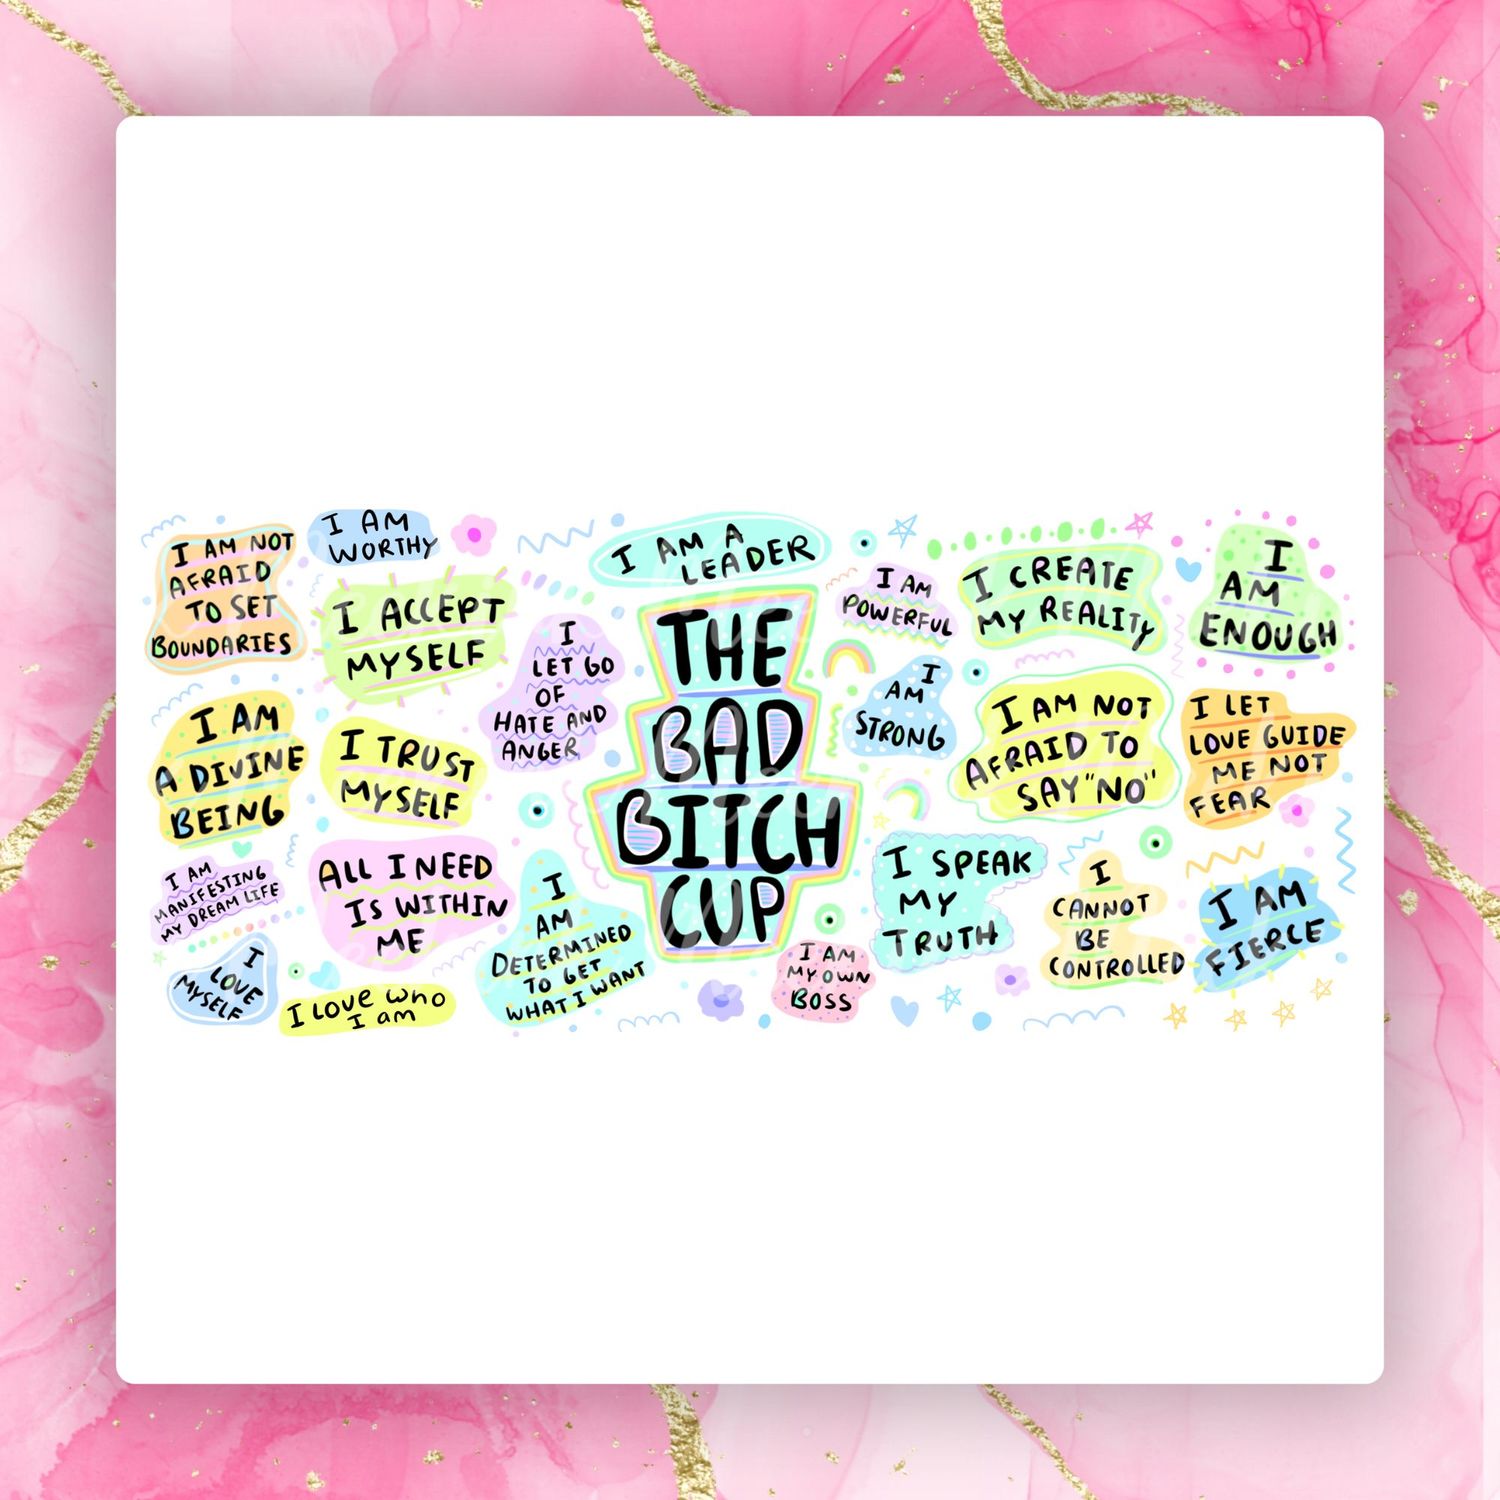 I AM NOT
AFRAID
TO SET
BOUNDARIES
I AM
WORTHY
I ACCEPT
MYSELF
I
LET GO
OF
HATE AND
ANGER
I AM
A DIVINE
BEING
I TRUST
MYSELF
I AM
MANIFESTING
MY DREAM LIFE
ALL I NEED
IS WITHIN
ME
I
LOVE
MYSELF
I LOVE WHO
I am
I
AM
DETERMINED
TO GET
WHAT I WANT
I AM A
LEADER
THE
BAD
BITCH
CUP
I AM
POWERFUL
I CREATE
MY REALITY
I
AM
ENOUGH
I
AM
STRONG
I AM NOT
AFRAID TO
SAY "NO"
I LET
LOVE GUIDE
ME NOT
FEAR
I SPEAK
MY
TRUTH
I
CANNOT
BE
CONTROLLED
I AM
FIERCE
I AM
MY OWN
BOSS